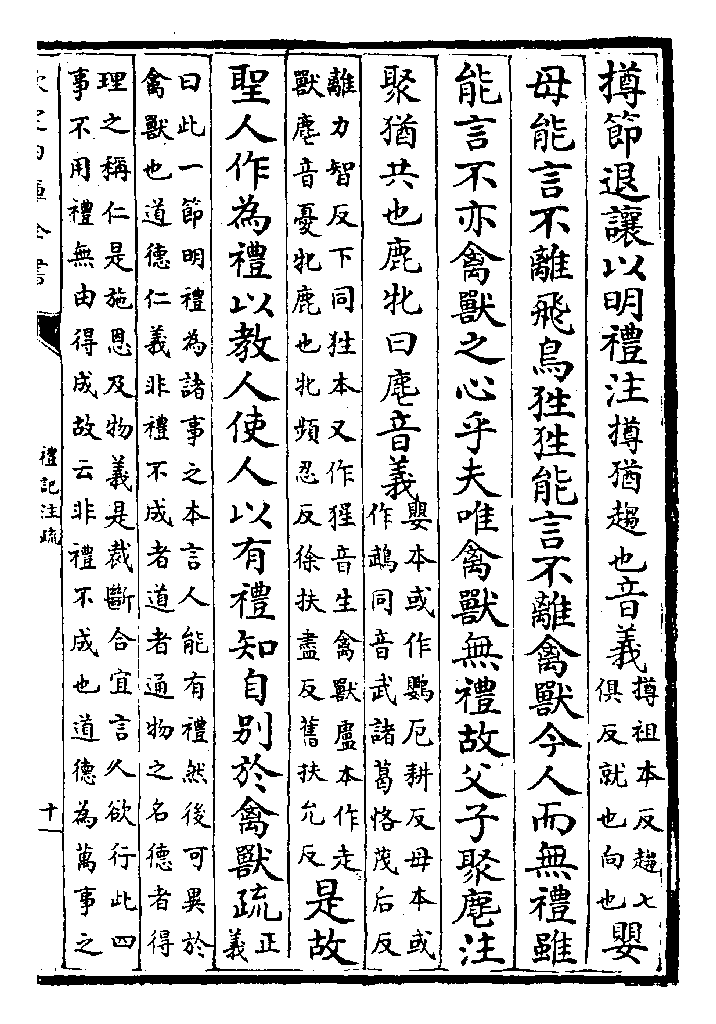 撙節退讓以明禮注撙猶趨也音義撙祖本反趨七
俱反就也向也嬰
母能言不離飛鳥狌狌能言不離禽獸今人而無禮雖
能言不亦禽獸之心乎夫唯禽獸無禮故父子聚麀注
聚猶共也鹿牝曰麀音義嬰本或作鸚厄耕反母本或
作䳇同音武諸葛恪茂后反
離力智反下同狌本又作猩音生禽獸盧本作走
獸麀音憂牝鹿也牝頻忍反徐扶盡反舊扶允反是故
聖人作為禮以教人使人以有禮知自别於禽獸疏正
義
曰此一節明禮為諸事之本言人能有禮然後可異於
禽獸也道德仁義非禮不成者道者通物之名德者得
理之稱仁是施恩及物義是裁斷合宜言人欲行此四
事不用禮無由得成故云非禮不成也道德為萬事之
禮記注疏
十一